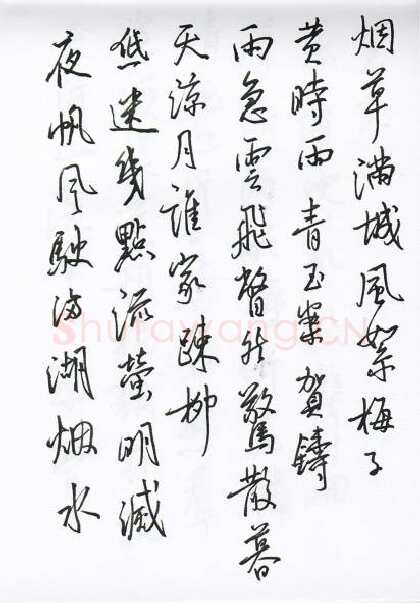 烟草滿城風絮梅子
黄時雨青玉案賀鑄
雨急雲飛瞥然驚散暮
天涼月誰家疎柳
低迷幾點流螢明滅
夜帆風駛滿湖烟水
Shufawang.CN